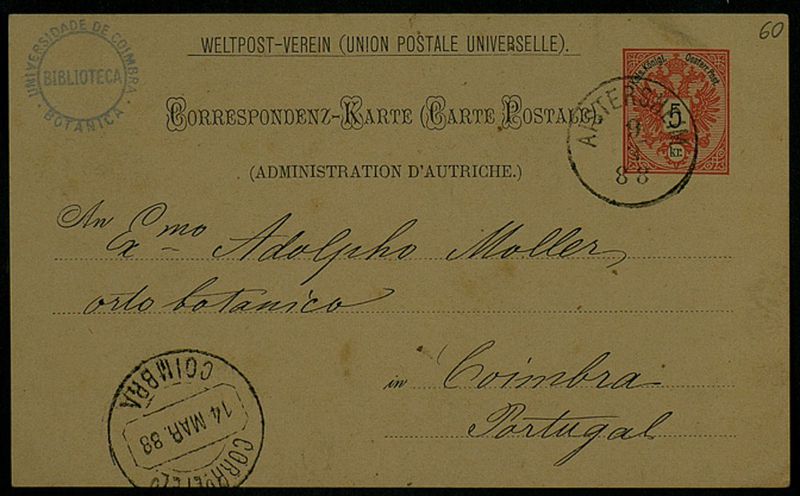 60
UNIVERSIDADE DE COIMBRA
BIBLIOTECA
BOTANICA
WELTPOST-VEREIN (UNION POSTALE UNIVERSELLE).
CORRESPONDENZ-KARTE (CARTE POSTALE)
(ADMINISTRATION D'AUTRICHE.)
Königl. Oesterr. Post.
5
kr.
9
3
88
An Exmo Adolpho Moller
orto botanico
in Coimbra
Portugal
COIMBRA
14 MAR. 88